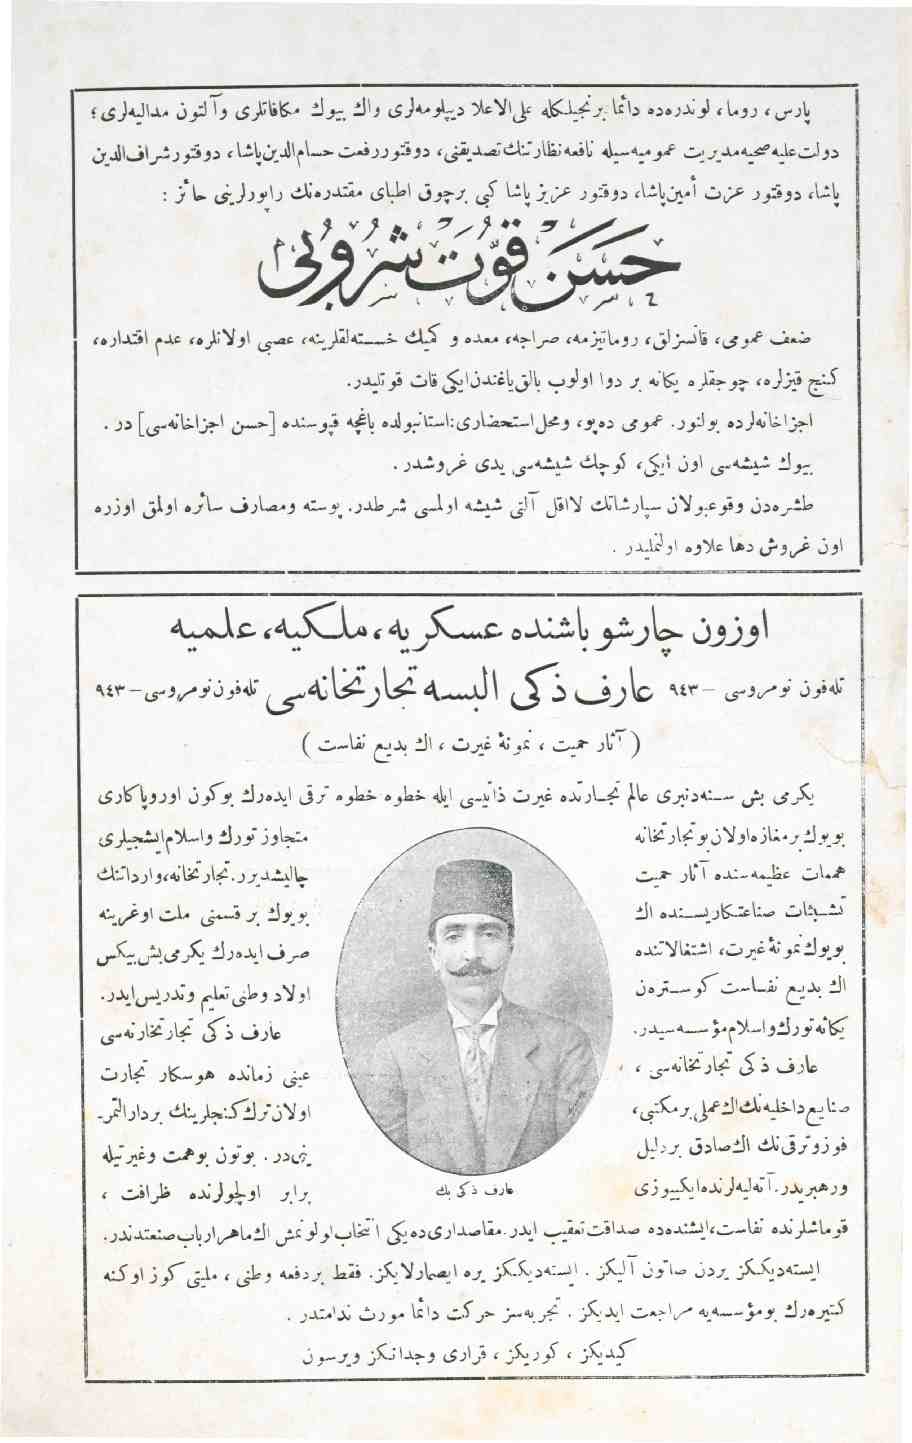 پارس، روما، لوندره‌ده دائما برنجیلکله علی الاعلا دیپلومه‌لری واك بیوك مكافاتلری وآلتون مدالیه‌لری؛
دولت علیه صحیه مدیریت عمومیه‌سیله نافعه نظارتنك تصدیقنی، دوقتور رفعت حسام‌الدین پاشا، دوقتور شراف‌الدین
پاشا، دوقتور عزت أمین پاشا، دوقتور عزیز پاشا كبی برچوق اطبای مقتدره‌نك راپورلرینی حائز :
حَسَن قُوَّت شُرُوبی
ضعف عمومی، قانسزلق، روماتیزمه، صراجه، معده و كمیك خسته‌لقلرینه، عصبی اولانلره، عدم اقتداره،
كنج قیزلره، چوجقلره یكانه بر دوا اولوب بالق یاغندن ایكی قات قوتلیدر.
اجزاخانه‌لرده بولنور. عمومی ده‌پو، ومحل استحضاری: استانبولده باغچه قپوسنده [حسن اجزاخانه‌سی] در .
بیوك شیشه‌سی اون ایكی، كوچك شیشه‌سی یدی غروشدر .
طشره‌دن وقوعبولان سپارشاتك لااقل آلتی شیشه اولمسی شرطدر. پوسته ومصارف سائره اولمق اوزره
اون غروش دها علاوه اولنملیدر .
اوزون چارشو باشنده عسكریه، ملكیه، علمیه
تله‌فون نومروسی – ٩٤٣ عارف ذكی البسه تجارتخانه‌سی تله‌فون نومروسی – ٩٤٣
( آثار حمیت ، نمونۀ غیرت ، اك بدیع نفاست )
یكرمی بش سنه‌دنبری عالم تجارتده غیرت ذاتیسی ایله خطوه خطوه ترقی ایده‌رك بوكون اوروپاكاری
بویوك بر مغازه اولان بو تجارتخانه
هممات عظیمه‌سنده آثار حمیت
تشبثات صناعتكاریسنده اك
بویوك نمونۀ غیرت، اشتغالاتنده
اك بدیع نفاست كوسترەن
یكانه تورك واسلام مؤسسه‌سیدر.
عارف ذكی تجارتخانه‌سی ،
صنایع داخلیه‌نك اك عملی بر مكتبی،
فوز وترقی‌نك اك صادق بر دلیل
ورهبریدر. آته‌لیه‌لرنده ایكییوزی
متجاوز تورك واسلام ایشجیلری
چالیشدیرر. تجارتخانه، وارداتنك
بویوك بر قسمنی ملت اوغرینه
صرف ایده‌رك یكرمی بش بیكس
اولاد وطنی تعلیم وتدریس ایدر.
عارف ذكی تجارتخانه‌سی
عینی زمانده هوسكار تجارت
اولان ترك كنجلرینك بر دارالتمر-
ینی در . بوتون بو همت وغیرتیله
برابر اولچولرنده ظرافت ،
عارف ذكی بك
قوماشلرنده نفاست، ایشنده‌ده صداقت تعقیب ایدر. مقاصداری ده‌پكی انتخاب اولونمش اك ماهر ارباب صنعتدندر.
ایسته‌دیككز یردن صاتون آلیكز . ایسته‌دیككز یره ایصمارلایكز. فقط بر دفعه وطنی ، ملیتی كوز اوكنه
كتیره‌رك بو مؤسسه‌یه مراجعت ایدیكز . تجربه‌سز حركت دائما مورث ندامتدر .
كیدیكز ، كوریكز ، قراری وجدانكز ویرسون